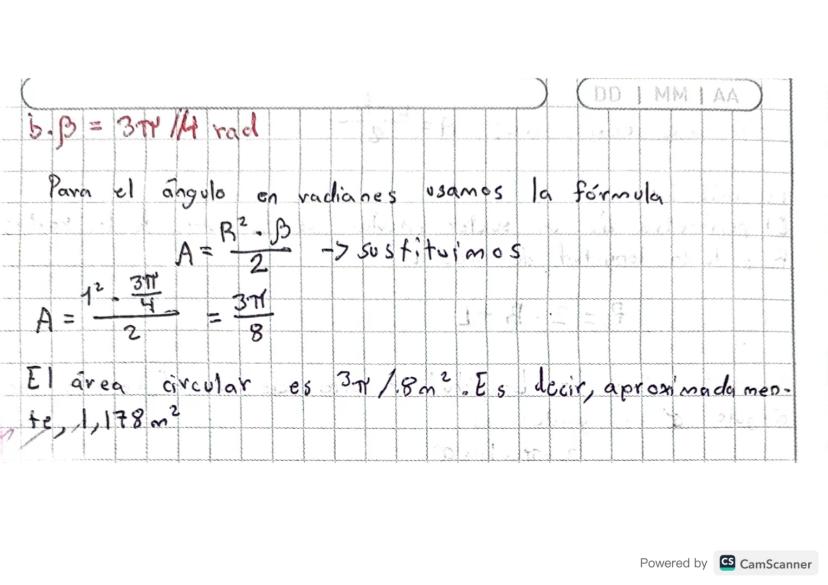 DD | MM | AA
b. β = 3π/4 rad
Para el ángulo en radianes usamos la fórmula
A = R² · β / 2 -> sustituimos
A = 1² · 3π/4 / 2 = 3π/8
El área circular es 3π/8m². Es decir, aproximadamen-
te, 1,178m²
Powered by CS CamScanner